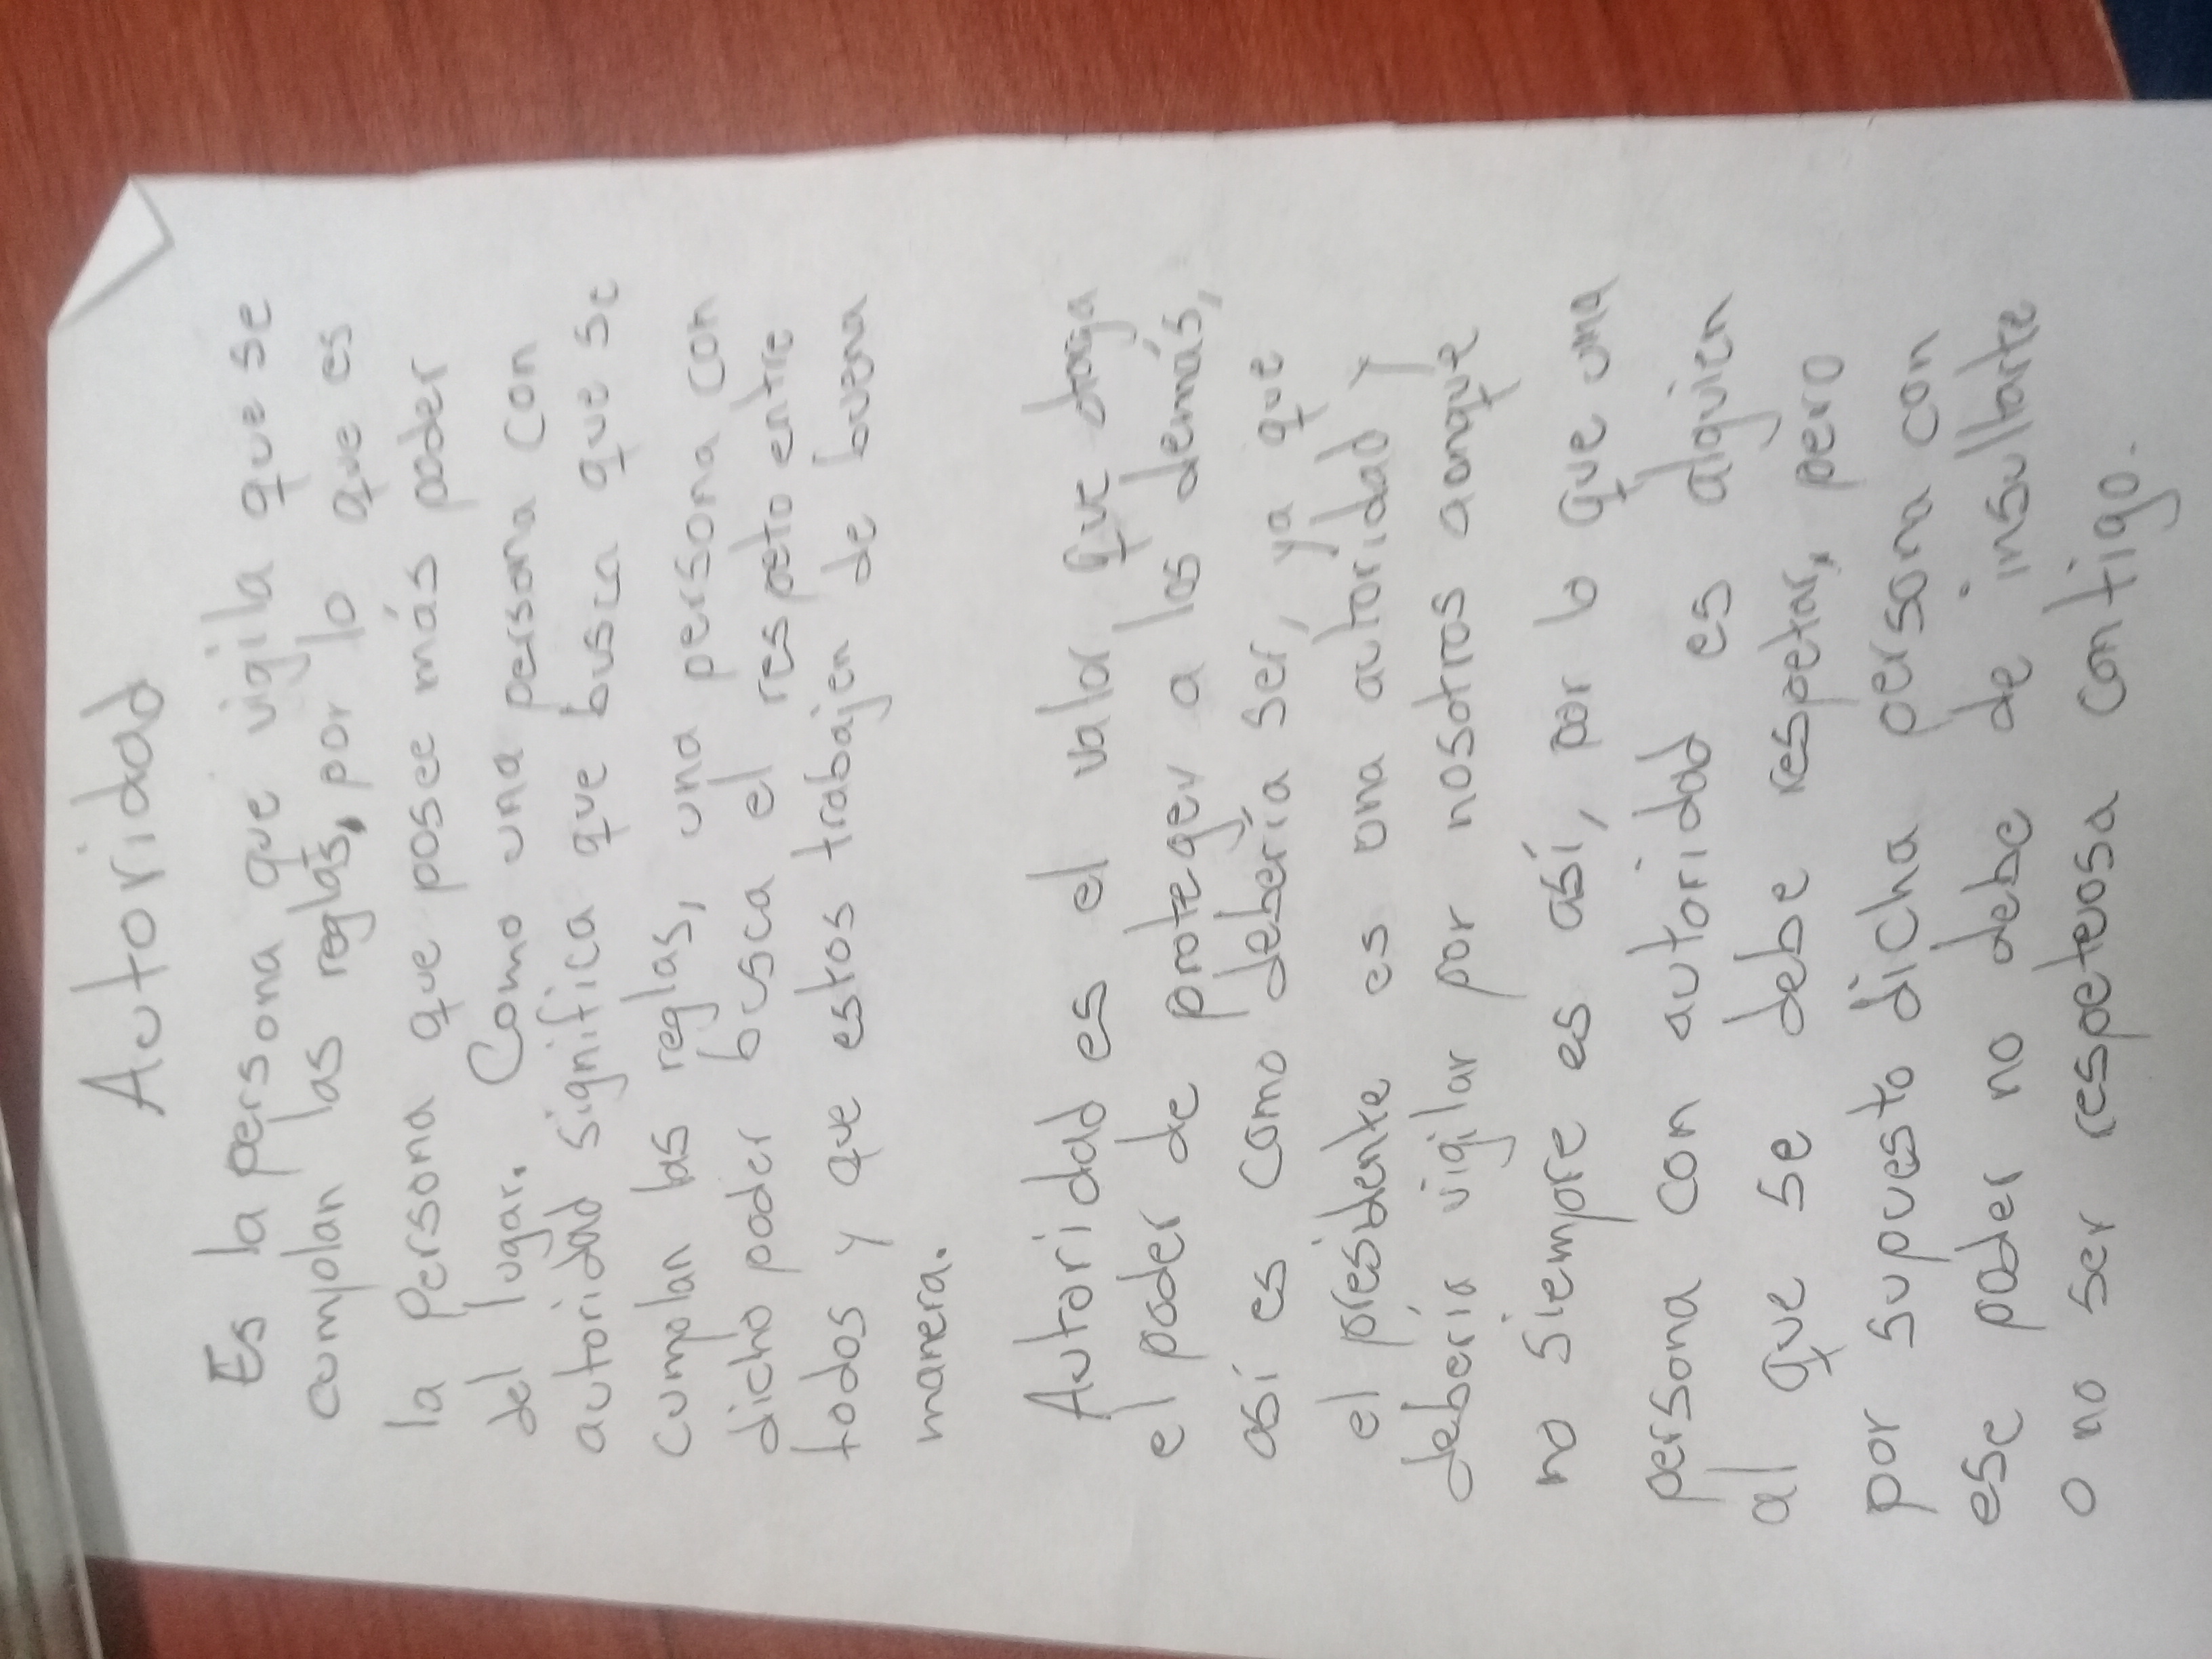 Autoridad
Es la persona que vigila que se
cumplan las reglas, por lo que es
la persona que posee más poder
del lugar. Como una persona con
autoridad significa que busca que se
cumplan las reglas, una persona con
dicho poder busca el respeto entre
todos y que estos trabajen de buena
manera.
Autoridad es el valor que otorga
el poder de proteger a los demás,
así es como debería ser, ya que
el presidente es una autoridad y
debería vigilar por nosotros aunque
no siempre es así, por lo que una
persona con autoridad es alguien
al que se debe respetar, pero
por supuesto dicha persona con
ese poder no debe de insultarte
o no ser respetuosa contigo.